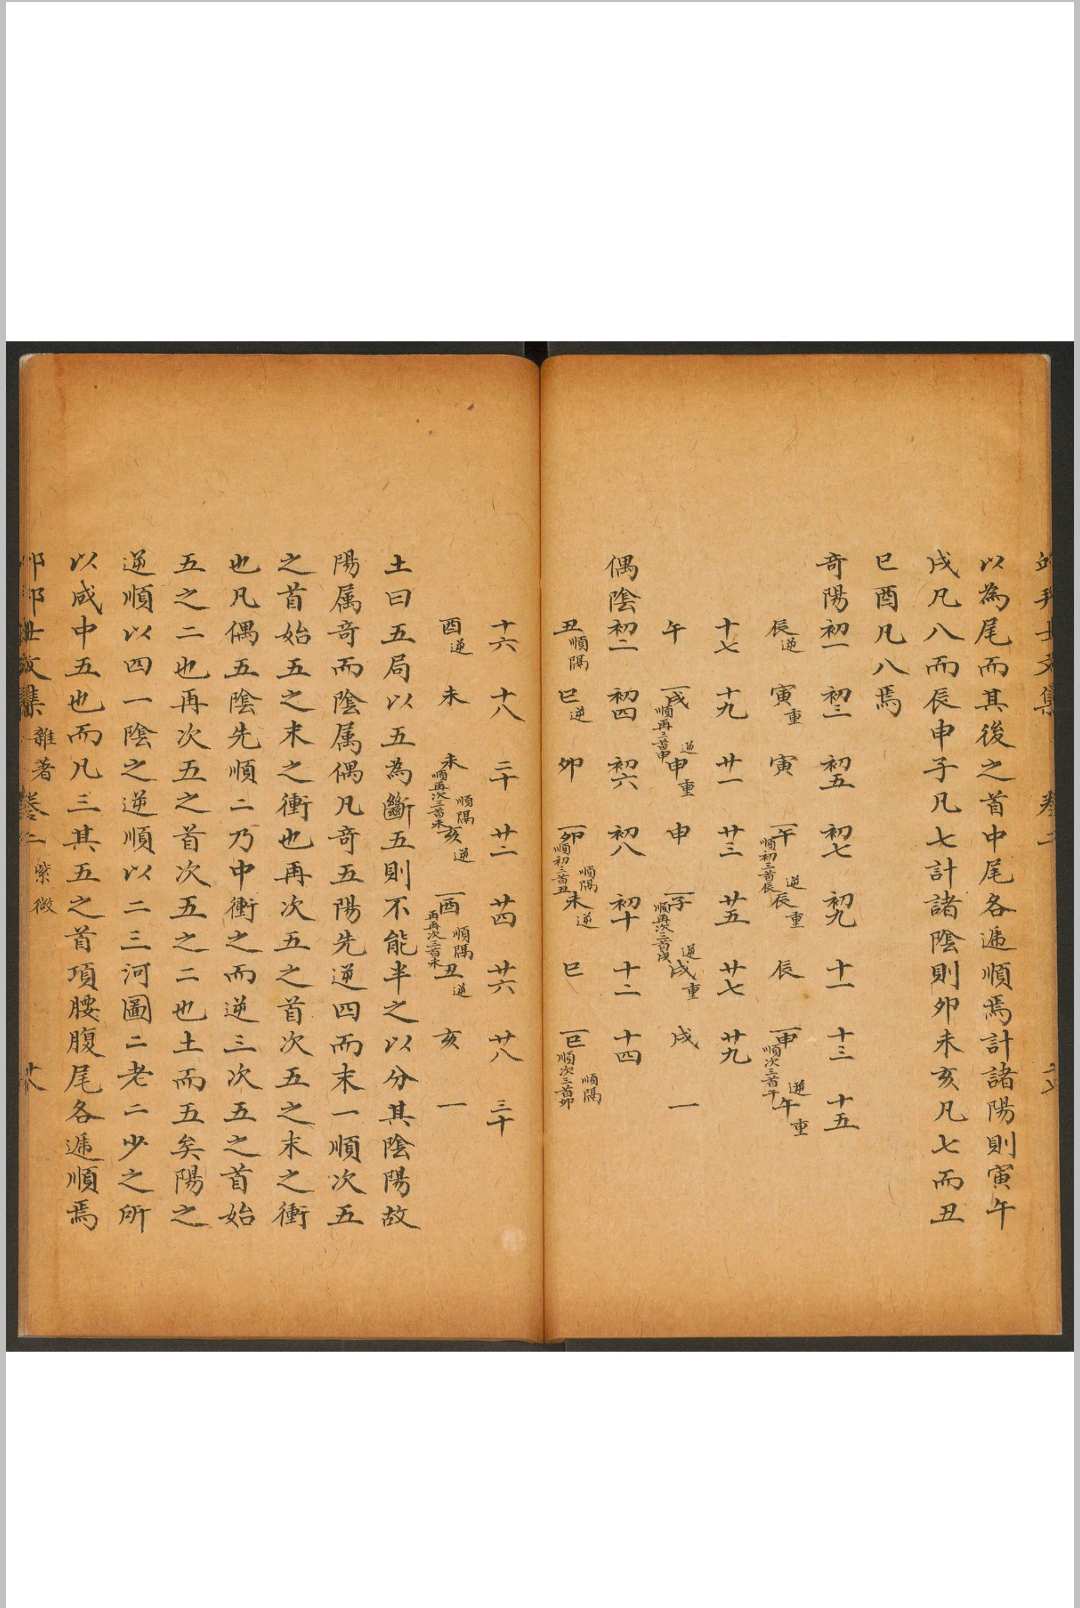 以為尾而其後之首中尾各遞順焉計諸陽則寅午
戌凡八而辰申子凡七計諸陰則卯未亥凡七而丑
巳酉凡八焉
奇陽初一 初三 初五 初七 初九 十一 十三 十五
辰逆 寅重 寅 一午順初三首辰 逆辰重 辰 一申順次三首午 逆午重
十七 十九 廿一 廿三 廿五 廿七 廿九
午 一戌順再三首申 逆申重 申 一子順再次三首戌 逆戌重 戌 一
偶陰初二 初四 初六 初八 初十 十二 十四
丑順隔 巳逆 卯 一卯順初三首丑 順隔未逆 巳 一巳順次三首卯 順隔
十六 十八 二十 廿二 廿四 廿六 廿八 三十
酉逆 未 未順再次三首未 順隔亥逆 一酉再再次三首未 順隔丑逆 亥 一
土曰五局以五為斷五則不能半之以分其陰陽故
陽属奇而陰属偶凡奇五陽先逆四而末一順次五
之首始五之末之衝也再次五之首次五之末之衝
也凡偶五陰先順二乃中衝之而逆三次五之首始
五之二也再次五之首次五之二也土而五矣陽之
逆順以四一陰之逆順以二三河圖二老二少之所
以成中五也而凡三其五之首項腰腹尾各遞順焉
雜著 卷二 紫微